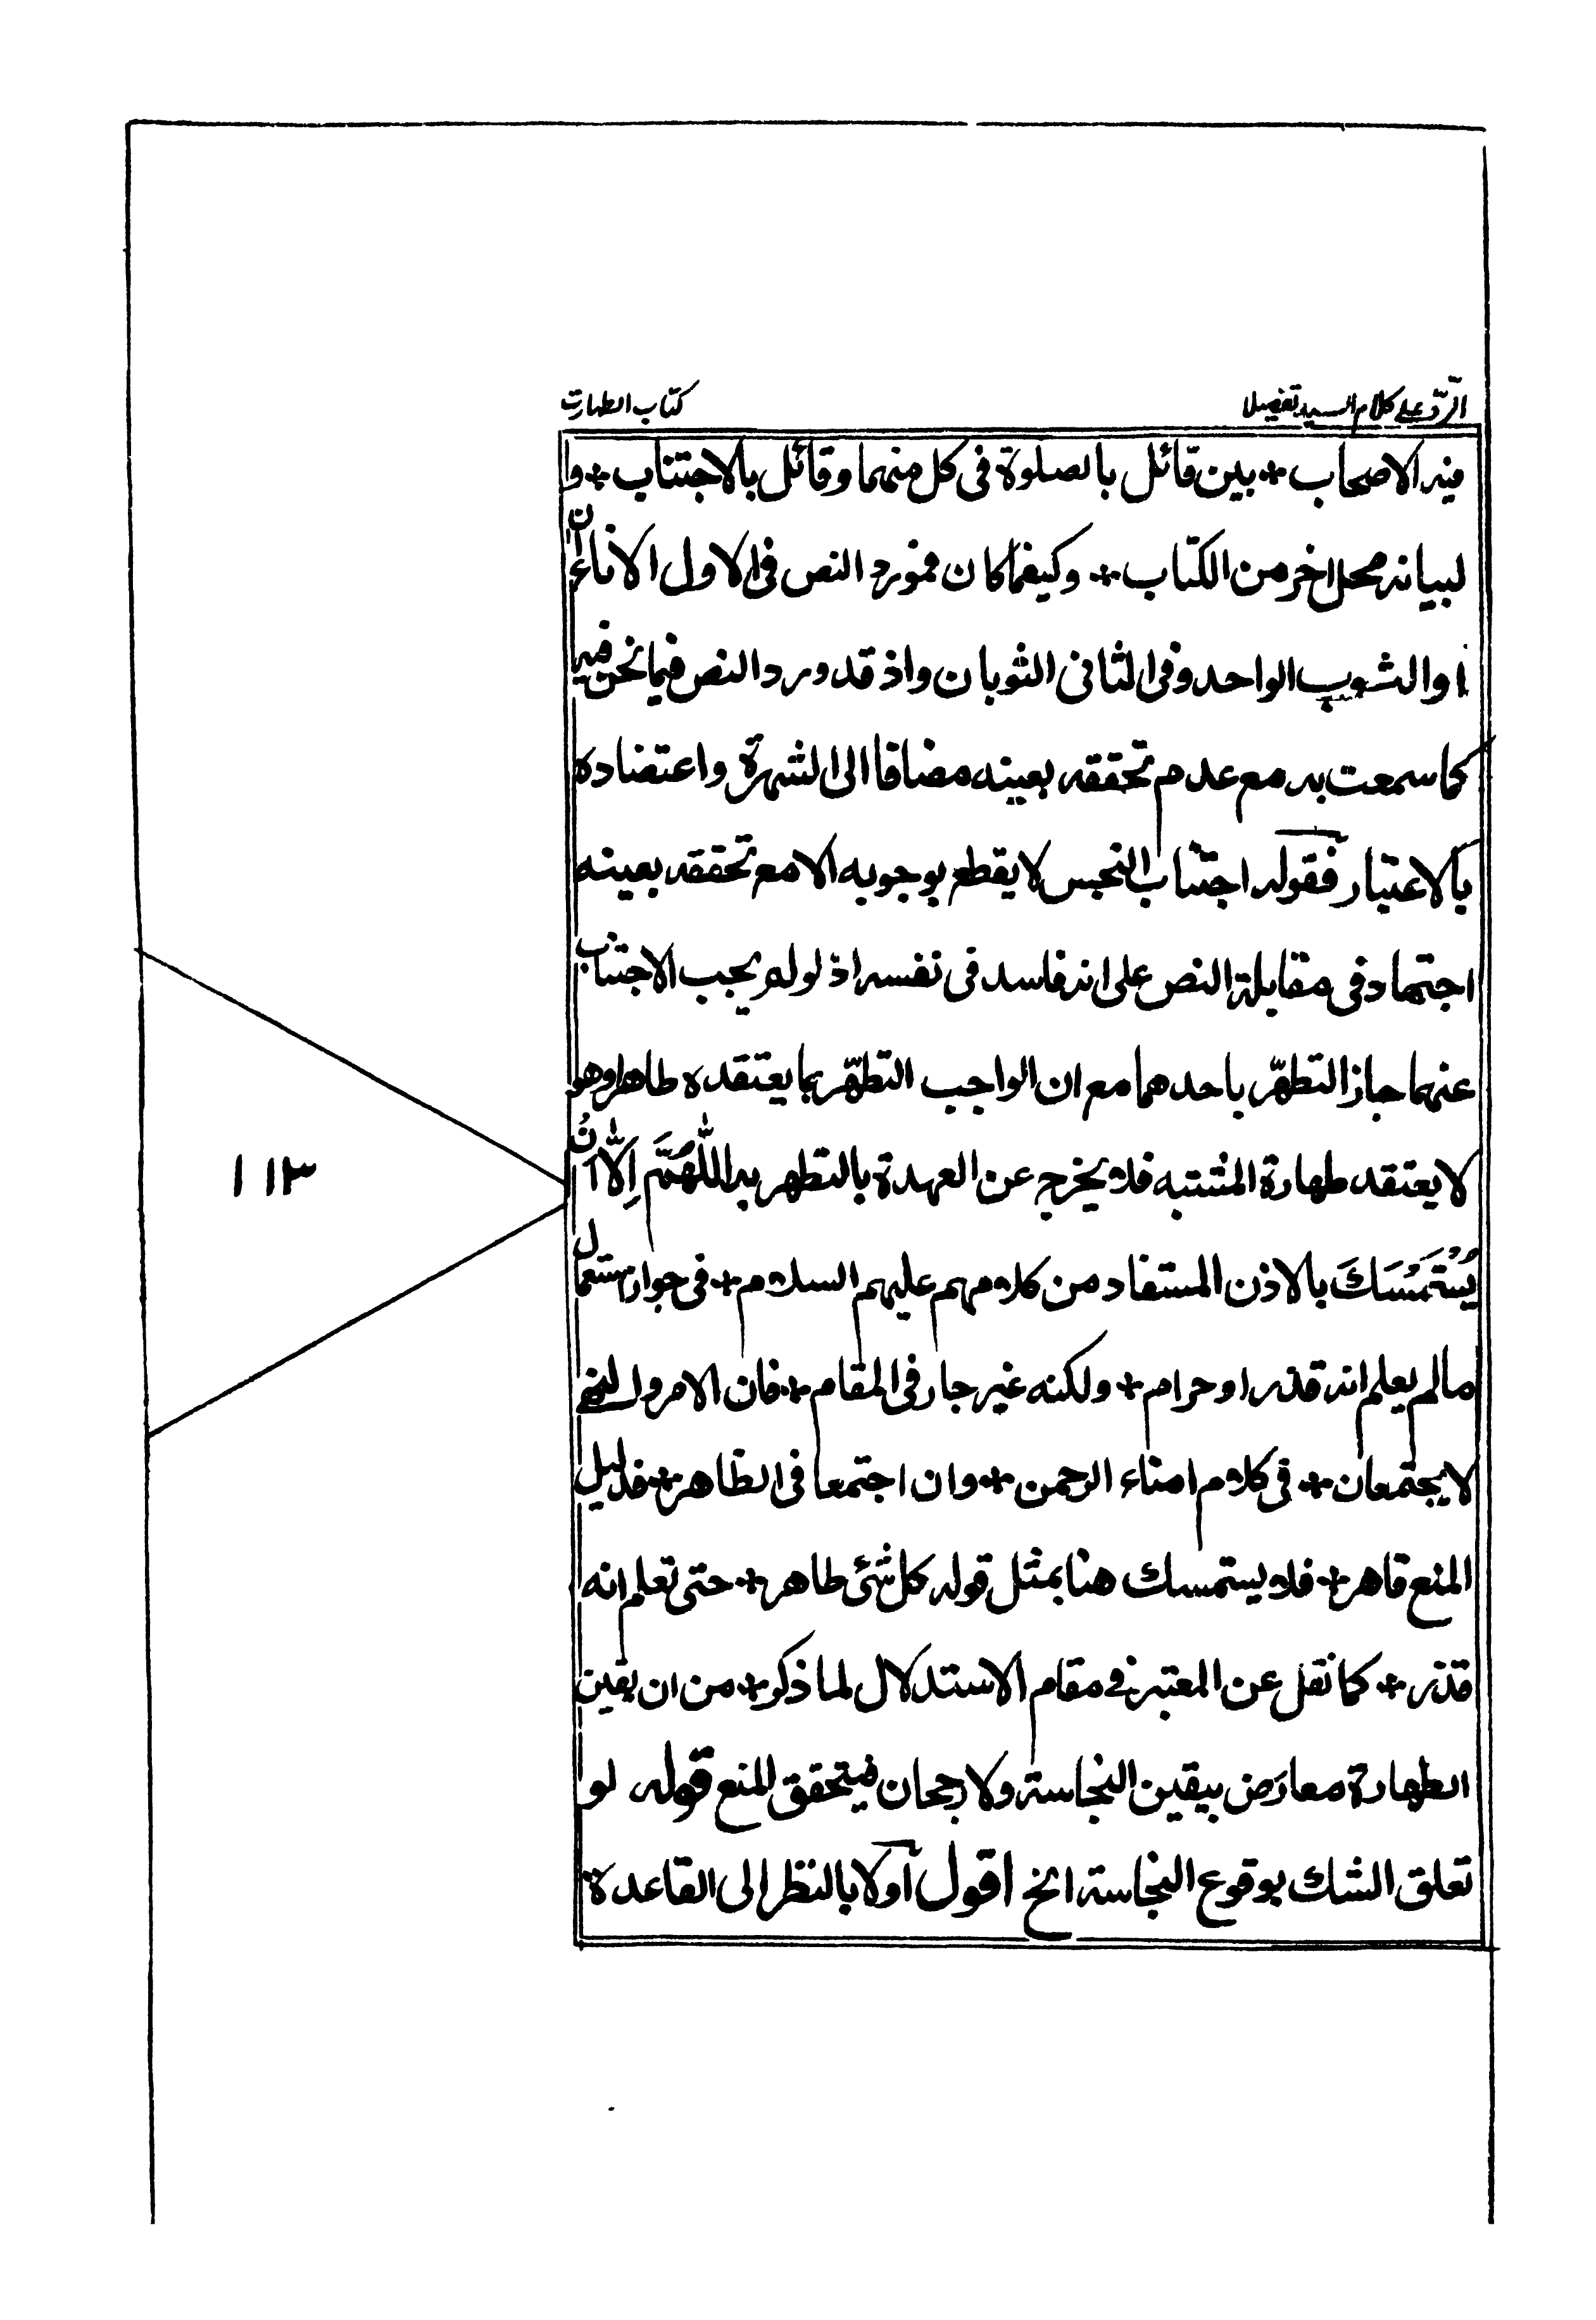 الرّد على كلام السيد تفصيلا
كتاب الطهارت
فيه الاصحاب * بين قائل بالصلوة فى كل منهما وقائل بالاجتناب * و
لبيانه محل اخر من الكتاب * وكيفما كان فمورد النص فى الاول الاناءان
او الثوب الواحد وفى الثانى الثوبان واذ قد ورد النص فيما نحن فيه
كما سمعت به مع عدم تحققه بعينه مضافا الى الشهرة واعتضاده
بالاعتبار فقوله اجتناب النجس لا يقطع بوجوبه الا مع تحققه بعينه
اجتهاد فى مقابلة النص على انه فاسد فى نفسه اذ لو لم يجب الاجتناب
عنهما جاز التطهّر باحدهما مع ان الواجب التطهّر بما يعتقده طاهرا وهو
لا يعتقد طهارة المشتبه فلا يخرج عن العهدة بالتطهر به اللّٰهُمَّ اِلَّا انُ
يُسْتَمْسَكَ بالاذن المستفاد من كلامهم عليهم السلام * فى جواز استعمال
مالم يعلم انه قذر او حرام * ولكنه غير جار فى المقام * فان الامر والنهى
لا يجتمعان * فى كلام امناء الرحمن * وان اجتمعا فى الظاهر * فدليل
المنع قاهر * فلا يستمسك هنا بمثل قوله كل شئ طاهر * حتى تعلم انه
قذر * كما نقل عن المعتبر فى مقام الاستدلال لما ذكر * من ان يقين
الطهارة معارَض بيقين النجاسة ولا رجحان فيتحقق المنع قوله لو
تعلق الشك بوقوع النجاسة الخ اقول اولا بالنظر الى القاعدة
١١٣